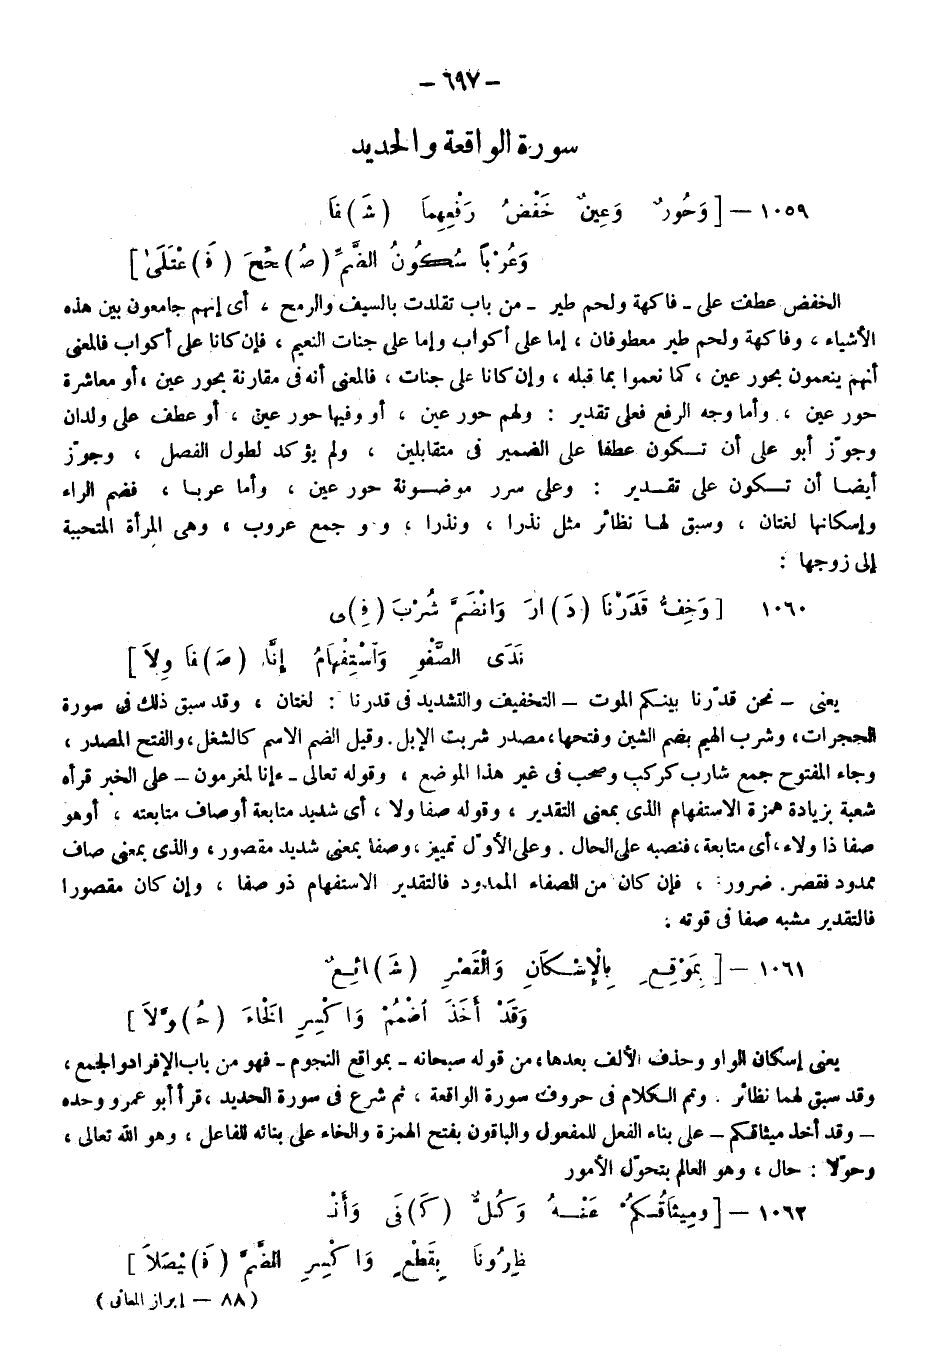 – ٦٩٧ –
سورة الواقعة والحديد
١٠٥٩ – [ وَحُورٌ وَعِينٌ خَفْضُ رَفْعِهِمَا (شَ)فَا
وَعُرْبًا سُكُونُ الضَّمِّ (صُ)حِّحَ (فَ)اعْتَلَىٰ ]
الخفض عطف على – فاكهة ولحم طير – من باب تقلدت بالسيف والرمح ، أى إنهم جامعون بين هذه
الأشياء ، وفاكهة ولحم طير معطوفان ، إما على أكواب وإما على جنات النعيم ، فإن كانا على أكواب فالمعنى
أنهم ينعمون بحور عين ، كما نعموا بما قبله ، وإن كانا على جنات ، فالمعنى أنه فى مقارنة بحور عين ، أو معاشرة
حور عين ، وأما وجه الرفع فعلى تقدير : ولهم حور عين ، أو وفيها حور عين ، أو عطف على ولدان
وجوّز أبو على أن تكون عطفا على الضمير فى متقابلين ، ولم يؤكد لطول الفصل ، وجوّز
أيضا أن تكون على تقدير : وعلى سرر موضونة حور عين ، وأما عربا ، فضم الراء
وإسكانها لغتان ، وسبق لها نظائر مثل نذرا ، ونذرا ، و و جمع عروب ، وهى المرأة المتحببة
إلى زوجها :
١٠٦٠ [ وَخِفُّ قَدَرْنَا (دَ)ارَ وَانْضَمَّ شُرْبَ (فِ)ى
نَدَى الصَّفْوِ وَاسْتِفْهَامُ إِنَّا (صَ)فَا وِلاَ ]
يعنى – نحن قدّرنا بينكم الموت – التخفيف والتشديد فى قدرنا : لغتان ، وقد سبق ذلك فى سورة
الحجرات ، وشرب الهيم بضم الشين وفتحها ، مصدر شربت الإبل . وقيل الضم الاسم كالشغل ، والفتح المصدر ،
وجاء المفتوح جمع شارب كركب وصحب فى غير هذا الموضع ، وقوله تعالى – ءإنا لمغرمون – على الخبر قرأه
شعبة بزيادة همزة الاستفهام الذى بمعنى التقدير ، وقوله صفا ولا ، أى شديد متابعة أوصاف متابعته ، أوهو
صفا ذا ولاء ، أى متابعة ، فنصبه على الحال . وعلى الأوّل تمييز ، وصفا بمعنى شديد مقصور ، والذى بمعنى صاف
ممدود فقصر . ضرورة ، فإن كان من الصفاء الممدود فالتقدير الاستفهام ذو صفا ، وإن كان مقصورا
فالتقدير مشبه صفا فى قوته :
١٠٦١ – [ بِمَوْقِعِ بِالْإِسْكَانِ وَالْقَصْرِ (شَ)ائِعٌ
وَقَدْ أَخَذَ اضْمُمْ وَاكْسِرِ الْخَاءَ (حُ)وَّلاَ ]
يعنى إسكان الواو وحذف الألف بعدها ، من قوله سبحانه – بمواقع النجوم – فهو من باب الإفراد والجمع ،
وقد سبق لهما نظائر . وتم الكلام فى حروف سورة الواقعة ، ثم شرع فى سورة الحديد ، قرأ أبو عمرو وحده
– وقد أخذ ميثاقكم – على بناء الفعل للمفعول والباقون بفتح الهمزة والخاء على بنائه للفاعل ، وهو الله تعالى ،
وحوّلا : حال ، وهو العالم بتحوّل الأمور
١٠٦٢ – [ ومِيثَاقُكُمْ عَنْهُ وَكُلٌّ (كَ)فَى وَأَنْـ
ظِرُونَا بِقَطْعٍ وَاكْسِرِ الضَّمَّ (فَ)يْصَلاَ ]
( ٨٨ – إبراز المعانى )